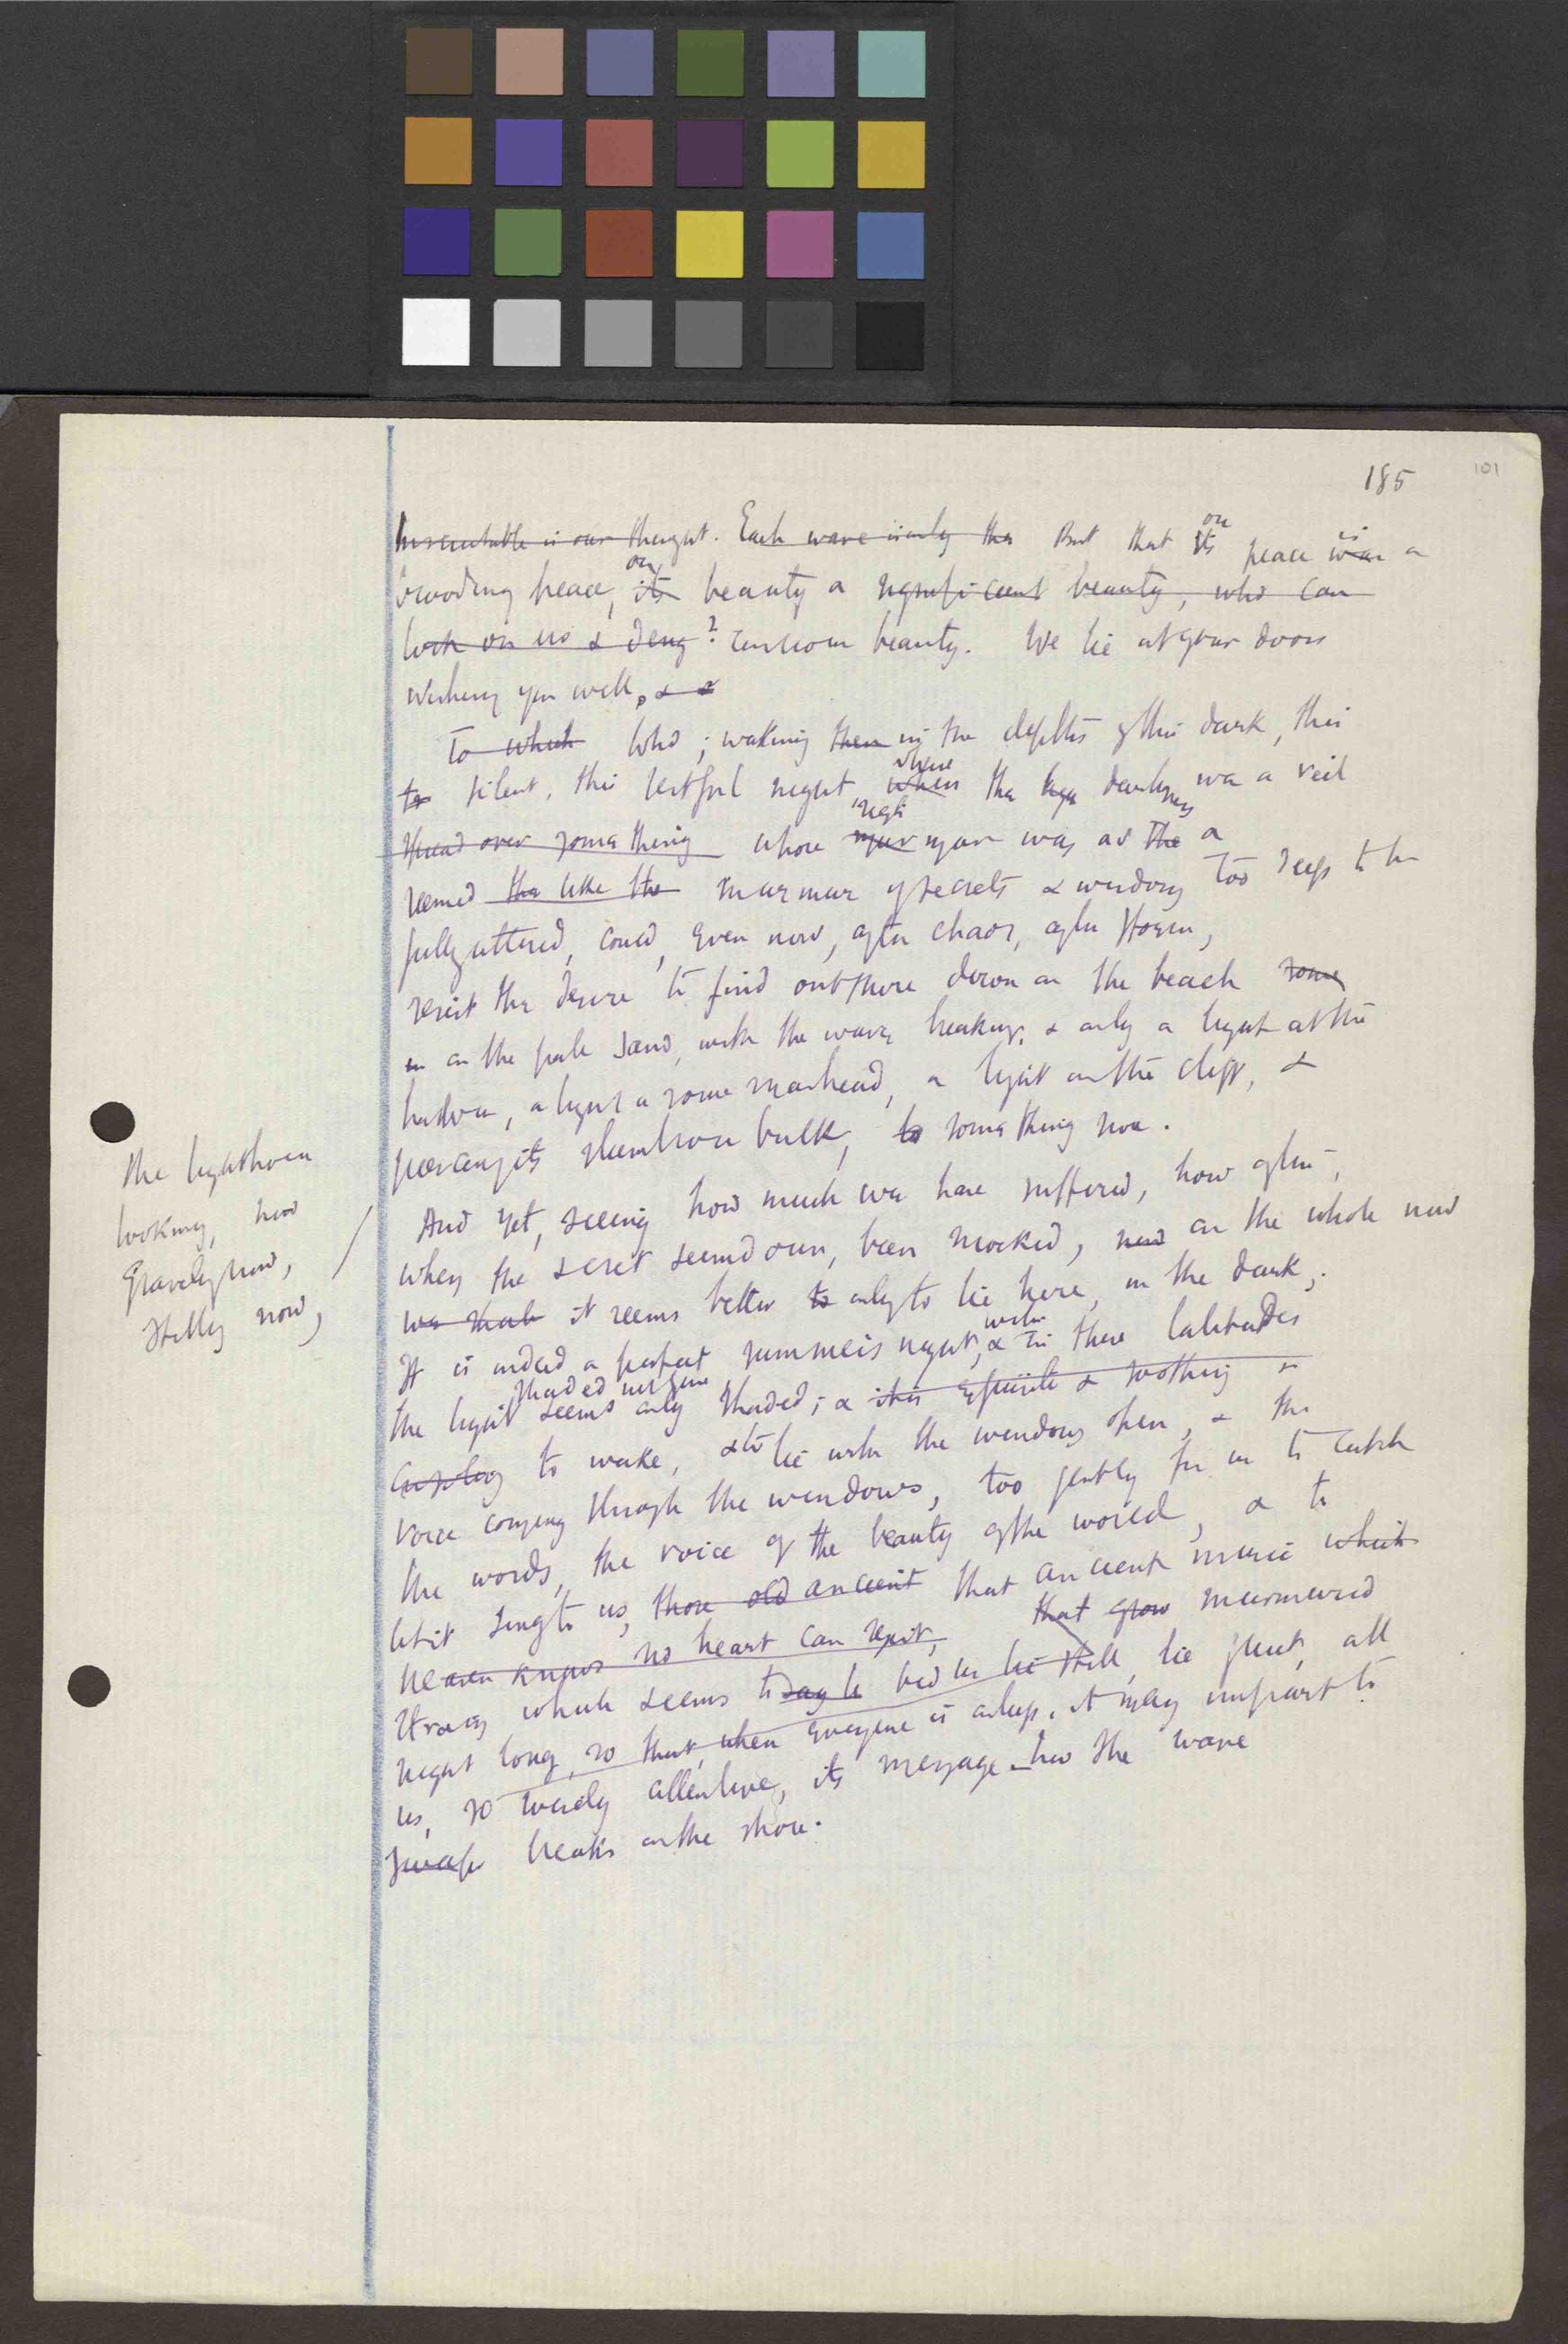 185
101
Inscrutable is our thought. Each wave is only the But that its our peace was is a
brooding peace, its our beauty a significant beauty, who can
look on us & deny? conscious beauty. We lie at your doors
wishing you well, & &
To which Who, waking then in the depths of this dark, this
to silent, this restful night, when where the darkness was a veil
spread over something whose mur night was as the a
seemed the like the murmur of secrets & wisdoms too deep to be
fully uttered, could, even now, after chaos, after storm,
resist the desire to find out there down on the beach some
on the pale sand, with the waves breaking, & only a light at the
harbour, a light a some masthead, a light on the cliff, &
piercing its slumbrous bulk, to something
And yet, seeing how much we have suffered, how often,
when the secret seemed ours, been mocked, now on the whole now
we shall it seems better to only to lie here, in the dark;
The lighthouse
looking, now
gravely now,
stilly now,
It is indeed a perfect summer's night, & in these latitudes
the light seems only shaded; & it is exquisite & soothing &
shaded
to wake, & to lie with the windows open, & the
voice coming through the windows, too gently for us to catch
the words, the voice of the beauty of the world, & to
let it sing to us, those old ancient that ancient music which
heaven knows no heart can resist, that grow murmured
which seems to say to bid us lie still, lie quiet, all
night long, so that, when everyone is asleep, it may impart to
us, so attentive, its message - how the wave
breaks on the shore.